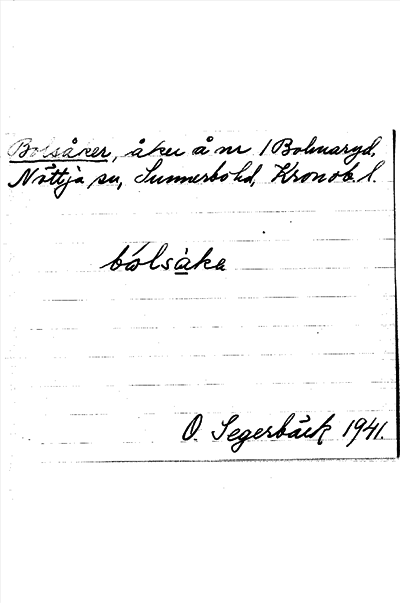 Bolsåker, åker å nr 1 Bolmaryd,
Nöttja sn, Sunnerbo hd, Kronob. l.
bólsàka
O. Segerbäck 1941.